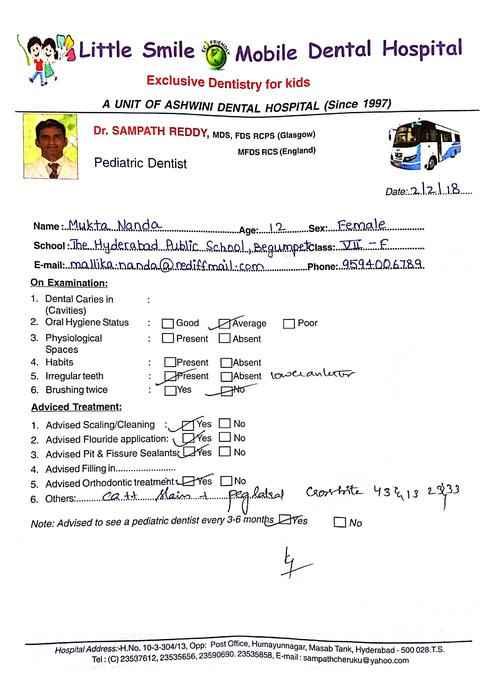 Little Smile ECO FRIENDLY Mobile Dental Hospital
Exclusive Dentistry for kids
A UNIT OF ASHWINI DENTAL HOSPITAL (Since 1997)
Dr. SAMPATH REDDY, MDS, FDS RCPS (Glasgow)
MFDS RCS (England)
Pediatric Dentist
Date: 2/2/18
Name: Mukta Nanda Age: 12 Sex: Female
School: The Hyderabad Public School, Begumpet Class: VII - F
E-mail: mallika.nanda@rediffmail.com Phone: 9594006789
On Examination:
1. Dental Caries in :
(Cavities)
2. Oral Hygiene Status : Good Average Poor
3. Physiological : Present Absent
Spaces
4. Habits : Present Absent
5. Irregular teeth : Present Absent lower anterior
6. Brushing twice : Yes No
Adviced Treatment:
1. Advised Scaling/Cleaning : Yes No
2. Advised Flouride application: Yes No
3. Advised Pit & Fissure Sealants: Yes No
4. Advised Filling in....................
5. Advised Orthodontic treatment: Yes No
6. Others: stain + peg lateral Crossbite
Note: Advised to see a pediatric dentist every 3-6 months Yes No
Hospital Address:-H.No. 10-3-304/13, Opp: Post Office, Humayunnagar, Masab Tank, Hyderabad - 500 028.T.S.
Tel : (C) 23537612, 23535656, 23590690. 23535858, E-mail : sampathcheruku@yahoo.com